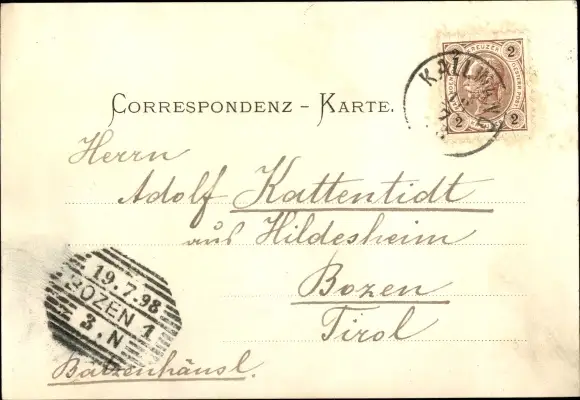 KREUZER
2
2 2
KALTW
CORRESPONDENZ – KARTE.
Herrn
Adolf Kattentidt
aus Hildesheim
Bozen
Tirol
19.7.98
BOZEN 1
3.N
Batzenhäusl.